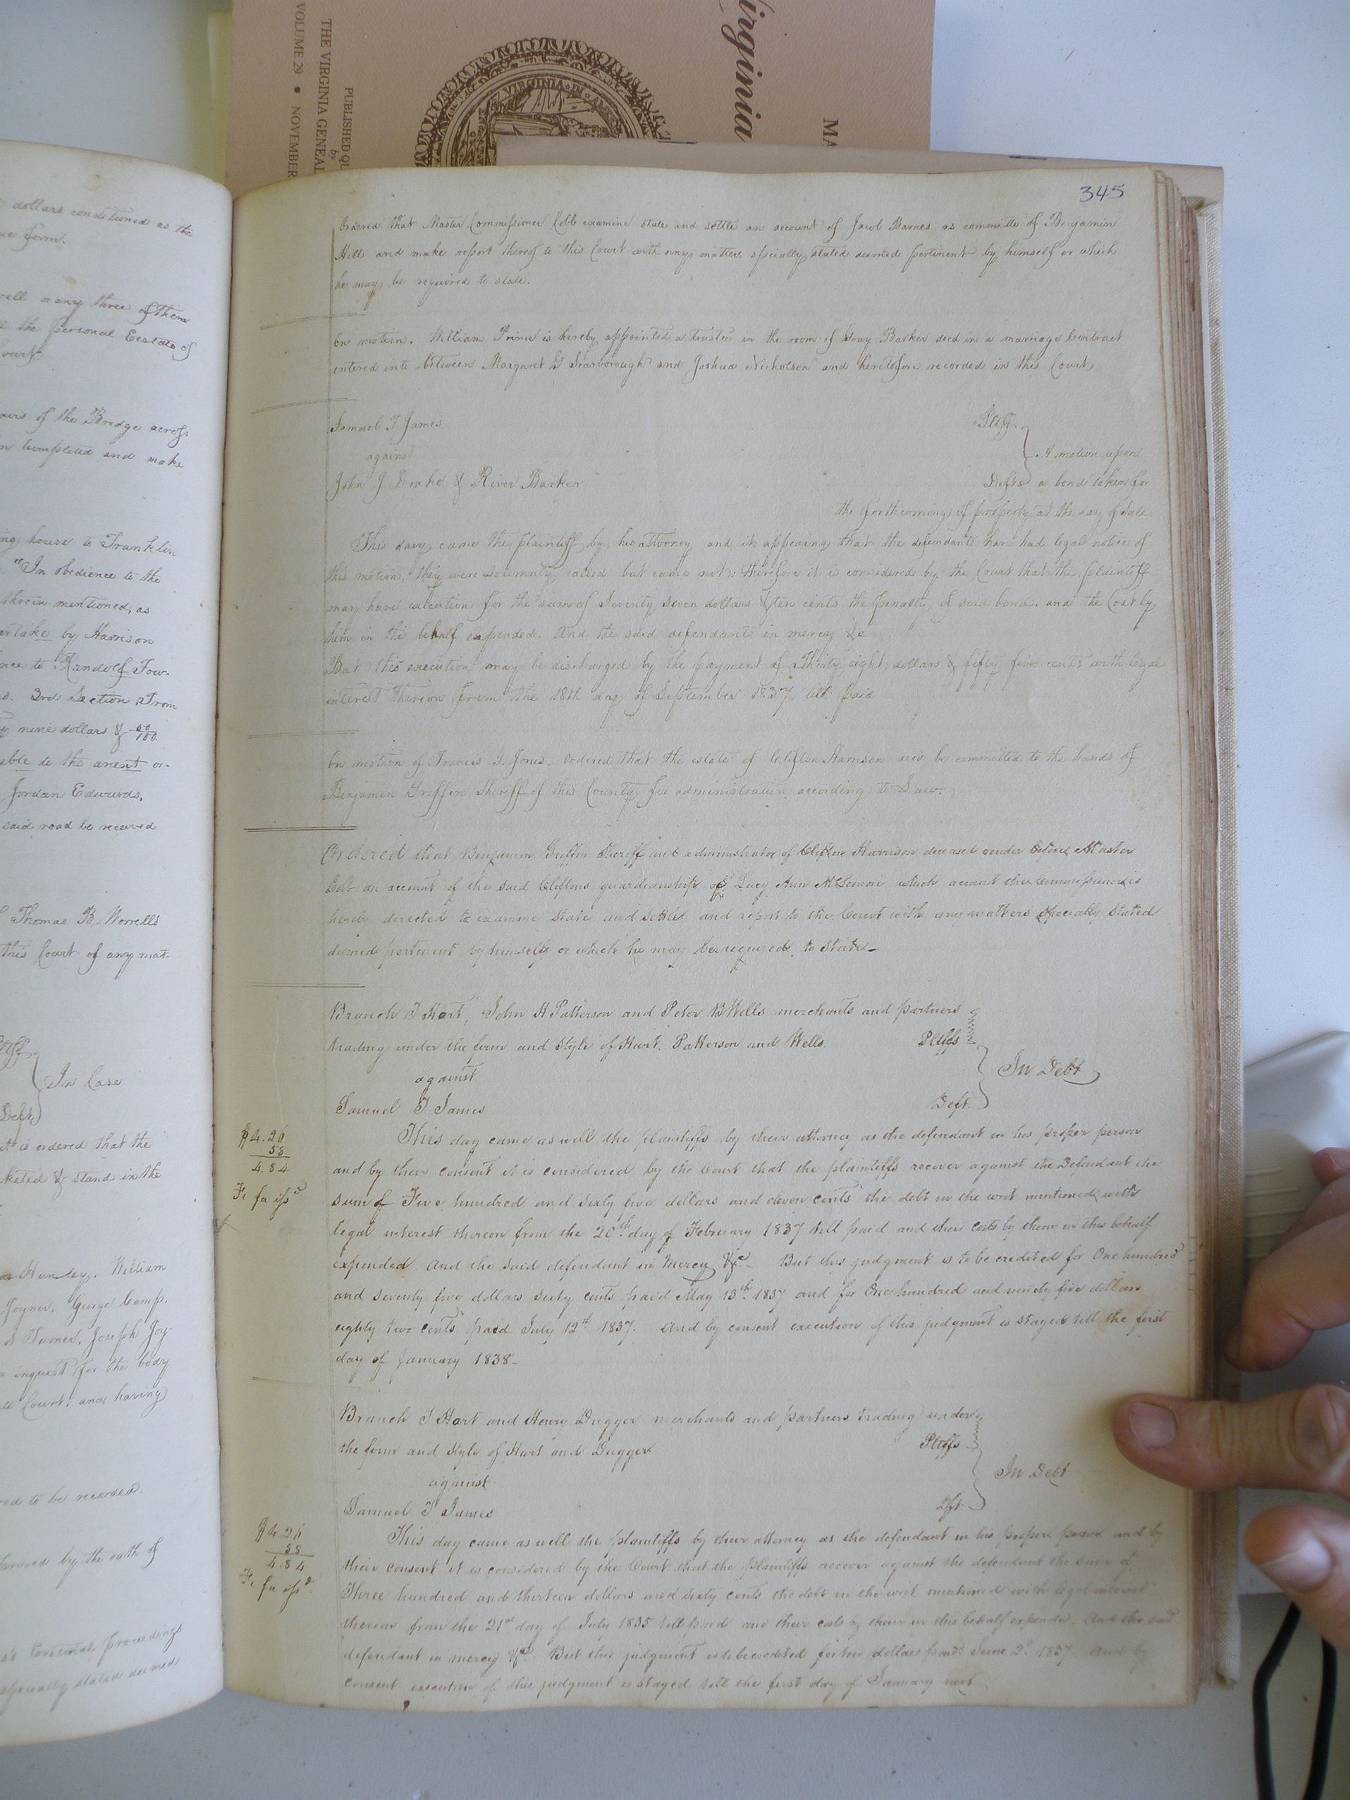 Virginia
MA
PUBLISHED QU
by
THE VIRGINIA GENEAL
VOLUME 29 • NOVEMBER
VIRGINIA IN AN
dollars conditioned as the
form.
well or any three of them
the personal Eestate of
Court
of the Bridge across
completed and make
house to Franklin
"In obedience to the
therein mentioned, as
by Harrison
to Randolf Tow-
3rd Section From
nine dollars & 50/100
to the arent or-
Jordan Edwards,
said road be received
Thomas B. Worrells
this Court of any mat-
In Case
Deft
it is ordered that the
& stand in the
William
Joyner, George Camp,
Turner, Joseph Joy-
inquest for the body
Court, and having
to be recorded.
by the oath of
proceedings
specially stated deemed
345
Ordered that Master Commissioner Cobb examine state and settle an account of Jacob Barnes as committe of Benjamin
Hill and make report thereof to this Court with any matters specially stated deemed pertinent by himself or which
he may be required to state.
On motion. William Prince is hereby appointed a trustee in the room of Barker decd in a marriage Contract
entered into between Margaret G Scarborough and Joshua Nicholson and heretofore recorded in this Court,
Samuel T James Plaff
against A motion upon
John J Drake & River Barker Defts a bond taken for
the forthcoming of property at the day of Sale
This day came the plaintiff by his attorney and it appearing that the defendants have had legal notice of
this motion, they were solemnly called but came not: therefore it is considered by the Court that the plaintiff
may have execution for the sum of Seventy seven dollars & ten cents the penalty of said bond. and the Cost by
him in this behalf expended. And the said defendants in mercy &c
But this execution may be discharged by the payment of Thirty eight dollars & fifty five cents with legal
interest thereon from the 18th day of September 1837 till paid
On motion of Francis T. Jones. ordered that the estate of Clifton Harrison decd be committed to the hands of
Benjamin Griffin Sheriff of this County for administration according to Law.
Ordered that Benjamin Griffin Sheriff and administrator of Clifton Harrison deceased render before Master
Cobb an account of the said Cliftons guardianship of Lucy Ann McLemore which account the commissioner is
hereby directed to examine State and settled and report to the Court with any matters specially stated
deemed pertinent by himself or which he may be required to State
Branch T Hart, John H Patterson and Peter B Wells merchants and partners
trading under the firm and style of Hart. Patterson and Wells Pltffs
against In Debt
Samuel T James Deft
$4.26
58
4.84
Fi fa issd
This day came as well the plaintiffs by their attorney as the defendant in his proper person
and by their consent it is considered by the Court that the plaintiffs recover against the Defendant the
sum of Five hundred and sixty five dollars and eleven cents the debt in the writ mentioned with
legal interest thereon from the 20th day of February 1837 till paid and their costs by them in this behalf
expended And the said defendant in Mercy &c - But this judgment is to be credited for One hundred
and seventy five dollars sixty cents paid May 13th 1837 and for One hundred and ninety five dollars
eighty two cents paid July 12th 1837. And by consent execution of this judgment is stayed till the first
day of January 1838-
Branch T Hart and Henry Dugger merchants and partners trading under
the firm and style of Hart and Dugger Pltffs
against In Debt
Samuel T James Dft
$4.26
58
4.84
Fi fa issd
This day came as well the plaintiffs by their attorney as the defendant in his proper person and by
their consent it is considered by the Court that the plaintiffs recover against the defendant the sum of
Three hundred and thirteen dollars and sixty cents the debt in the writ mentioned with legal interest
thereon from the 21st day of July 1835 till paid and their costs by them in this behalf expended. And the said
defendant in mercy &c But this judgment is to be credited for ten dollars paid June 2d 1837. And by
consent execution of this judgment is stayed till the first day of January next